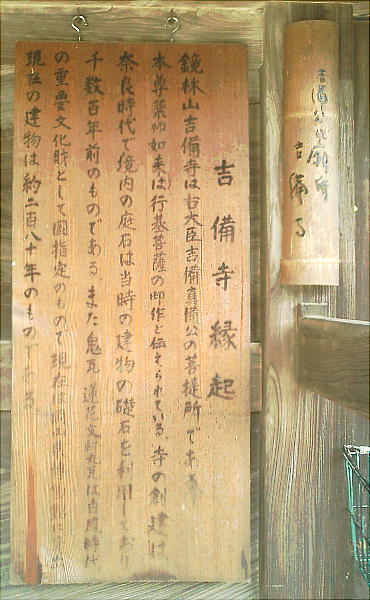 吉備公の廟所
吉備寺
吉備寺縁起
鏡林山吉備寺は右大臣吉備真備公の菩提所である
本尊薬師如来は行基菩薩の御作と伝えられている、寺の創建は
奈良時代で境内の庭石は当時の建物の礎石を利用しており
千数百年前のものである また鬼瓦 蓮花文軒丸瓦は白鳳時代
の重要文化財として国指定のもので現在は岡山
現在の建物は約二百八十年のものである